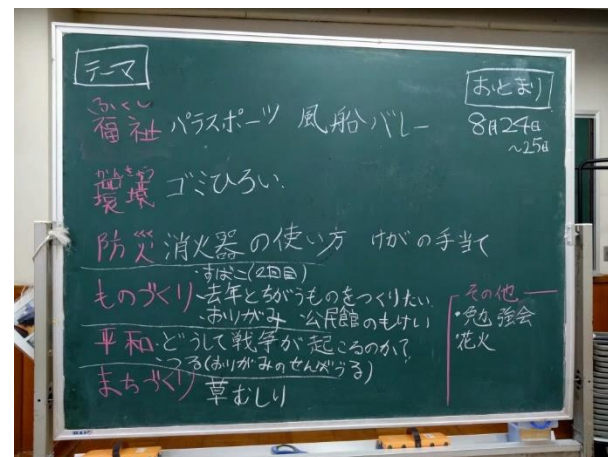 テーマ
おとまり
8月24日
～25日
ふくし
福祉 パラスポーツ 風船バレー
かんきょう
環境 ゴミひろい.
防災 消火器の使い方 けがの手当て
・すばこ(2回目)
ものづくり ・去年とちがうものをつくりたい
・おりがみ 公民館のもけい
平和・どうして戦争が起こるのか?
・つる(おりがみのせんばづる)
まちづくり 草むしり
その他
・勉強会
・花火